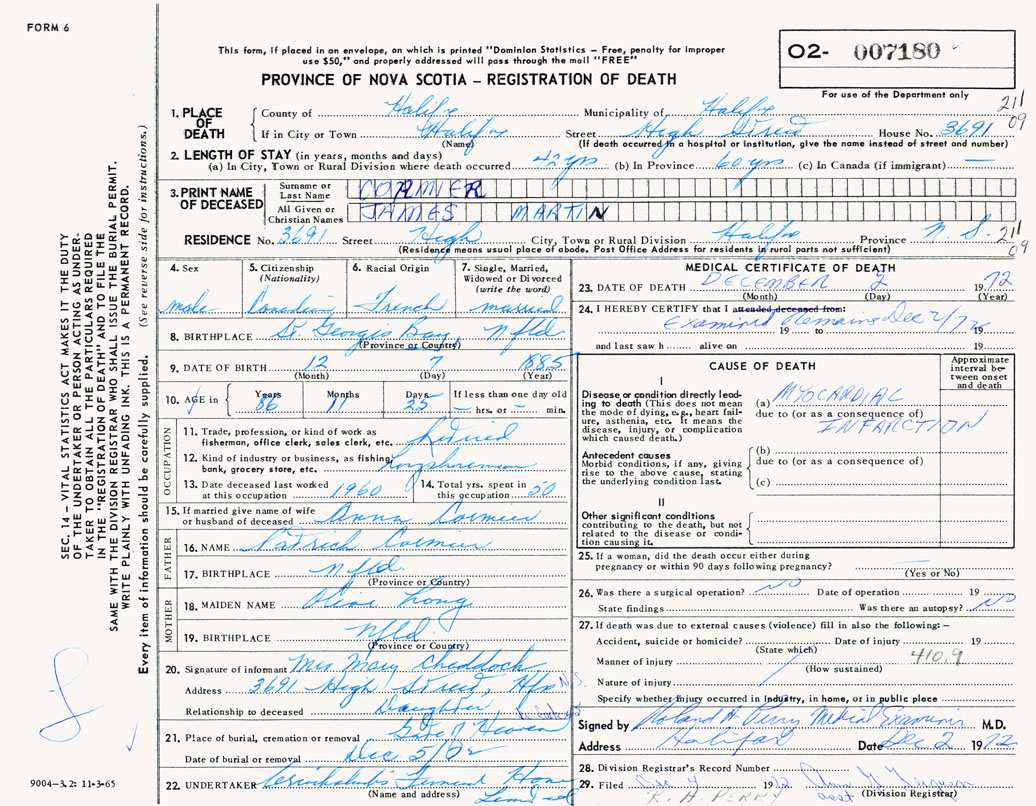 FORM 6
This form, if placed in an envelope, on which is printed "Dominion Statistics – Free, penalty for improper
use $50," and properly addressed will pass through the mail "FREE"
PROVINCE OF NOVA SCOTIA – REGISTRATION OF DEATH
O2- 007180
For use of the Department only
211
09
1. PLACE OF DEATH
County of Halifax Municipality of Halifax
If in City or Town Halifax Street High Street House No. 3691
(Name) (If death occurred in a hospital or institution, give the name instead of street and number)
2. LENGTH OF STAY (in years, months and days)
(a) In City, Town or Rural Division where death occurred 42 yrs (b) In Province 60 yrs (c) In Canada (if immigrant) —
3. PRINT NAME OF DECEASED
Surname or Last Name CORMIER
All Given or Christian Names JAMES MARTIN
RESIDENCE No. 3691 Street High City, Town or Rural Division Halifax Province N.S.
211
09
(Residence means usual place of abode. Post Office Address for residents in rural parts not sufficient)
4. Sex
male
5. Citizenship (Nationality)
Canadian
6. Racial Origin
French
7. Single, Married, Widowed or Divorced (write the word)
married
8. BIRTHPLACE St Georges Bay, Nfld
(Province or Country)
9. DATE OF BIRTH 12 7 1885
(Month) (Day) (Year)
10. AGE in Years 86 Months 11 Days 25 If less than one day old – hrs. or – min.
OCCUPATION
11. Trade, profession, or kind of work as fisherman, office clerk, sales clerk, etc. Retired
12. Kind of industry or business, as fishing, bank, grocery store, etc. Longshoreman
13. Date deceased last worked at this occupation 1960
14. Total yrs. spent in this occupation 50
15. If married give name of wife or husband of deceased Anna Cormier
FATHER
16. NAME Patrick Cormier
17. BIRTHPLACE Nfld.
(Province or Country)
MOTHER
18. MAIDEN NAME Olive Long
19. BIRTHPLACE Nfld.
(Province or Country)
20. Signature of informant Mrs Mary Chaddock
Address 3691 High Street, Hfx N.S.
Relationship to deceased Daughter
21. Place of burial, cremation or removal Gate of Heaven
Date of burial or removal Dec 5/72
22. UNDERTAKER Funeral Home
(Name and address)
MEDICAL CERTIFICATE OF DEATH
23. DATE OF DEATH DECEMBER 2 1972
(Month) (Day) (Year)
24. I HEREBY CERTIFY that I attended deceased from:
Examined Remains Dec 2/72
19 to 19
and last saw h alive on 19
CAUSE OF DEATH
Approximate interval between onset and death
I
Disease or condition directly leading to death (This does not mean the mode of dying, e.g., heart failure, asthenia, etc. It means the disease, injury, or complication which caused death.)
(a) MYOCARDIAL
due to (or as a consequence of)
INFARCTION
Antecedent causes
Morbid conditions, if any, giving rise to the above cause, stating the underlying condition last.
(b)
due to (or as a consequence of)
(c)
II
Other significant conditions
contributing to the death, but not related to the disease or condition causing it.
25. If a woman, did the death occur either during
pregnancy or within 90 days following pregnancy?
(Yes or No)
26. Was there a surgical operation? NO Date of operation 19
State findings Was there an autopsy? NO
27. If death was due to external causes (violence) fill in also the following: –
Accident, suicide or homicide? Date of injury 19
(State which)
Manner of injury 410.9
(How sustained)
Nature of injury
Specify whether injury occurred in industry, in home, or in public place
Signed by Roland H Perry Medical Examiner M.D.
Address Halifax Date Dec 2 1972
28. Division Registrar's Record Number
29. Filed Dec 4 1972
asst (Division Registrar)
R. H. PERRY
SEC. 14 – VITAL STATISTICS ACT MAKES IT THE DUTY
OF THE UNDERTAKER OR PERSON ACTING AS UNDER-
TAKER TO OBTAIN ALL THE PARTICULARS REQUIRED
IN THE "REGISTRATION OF DEATH" AND TO FILE THE
SAME WITH THE DIVISION REGISTRAR WHO SHALL ISSUE THE BURIAL PERMIT.
WRITE PLAINLY WITH UNFADING INK. THIS IS A PERMANENT RECORD.
Every item of information should be carefully supplied. (See reverse side for instructions.)
9004–3.2: 11-3-65